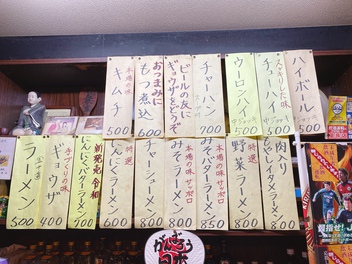 ハイボール
500
スッキリした味
チューハイ
500
ウーロンハイ
500
チャーハン
700
ビールの友に
ギョウザをどうぞ
おつまみに
もつ煮込
600
本場の味
キムチ
500
肉入り
ラーメン
800
特選
野菜ラーメン
800
本場の味 サッポロ
みそバターラーメン
850
本場の味 サッポロ
みそラーメン
800
チャーシューメン
800
特選
にんにくラーメン
600
新発売 令和
にんにくバターラーメン
700
手づくりの味
ギョウザ
400
ラーメン
500